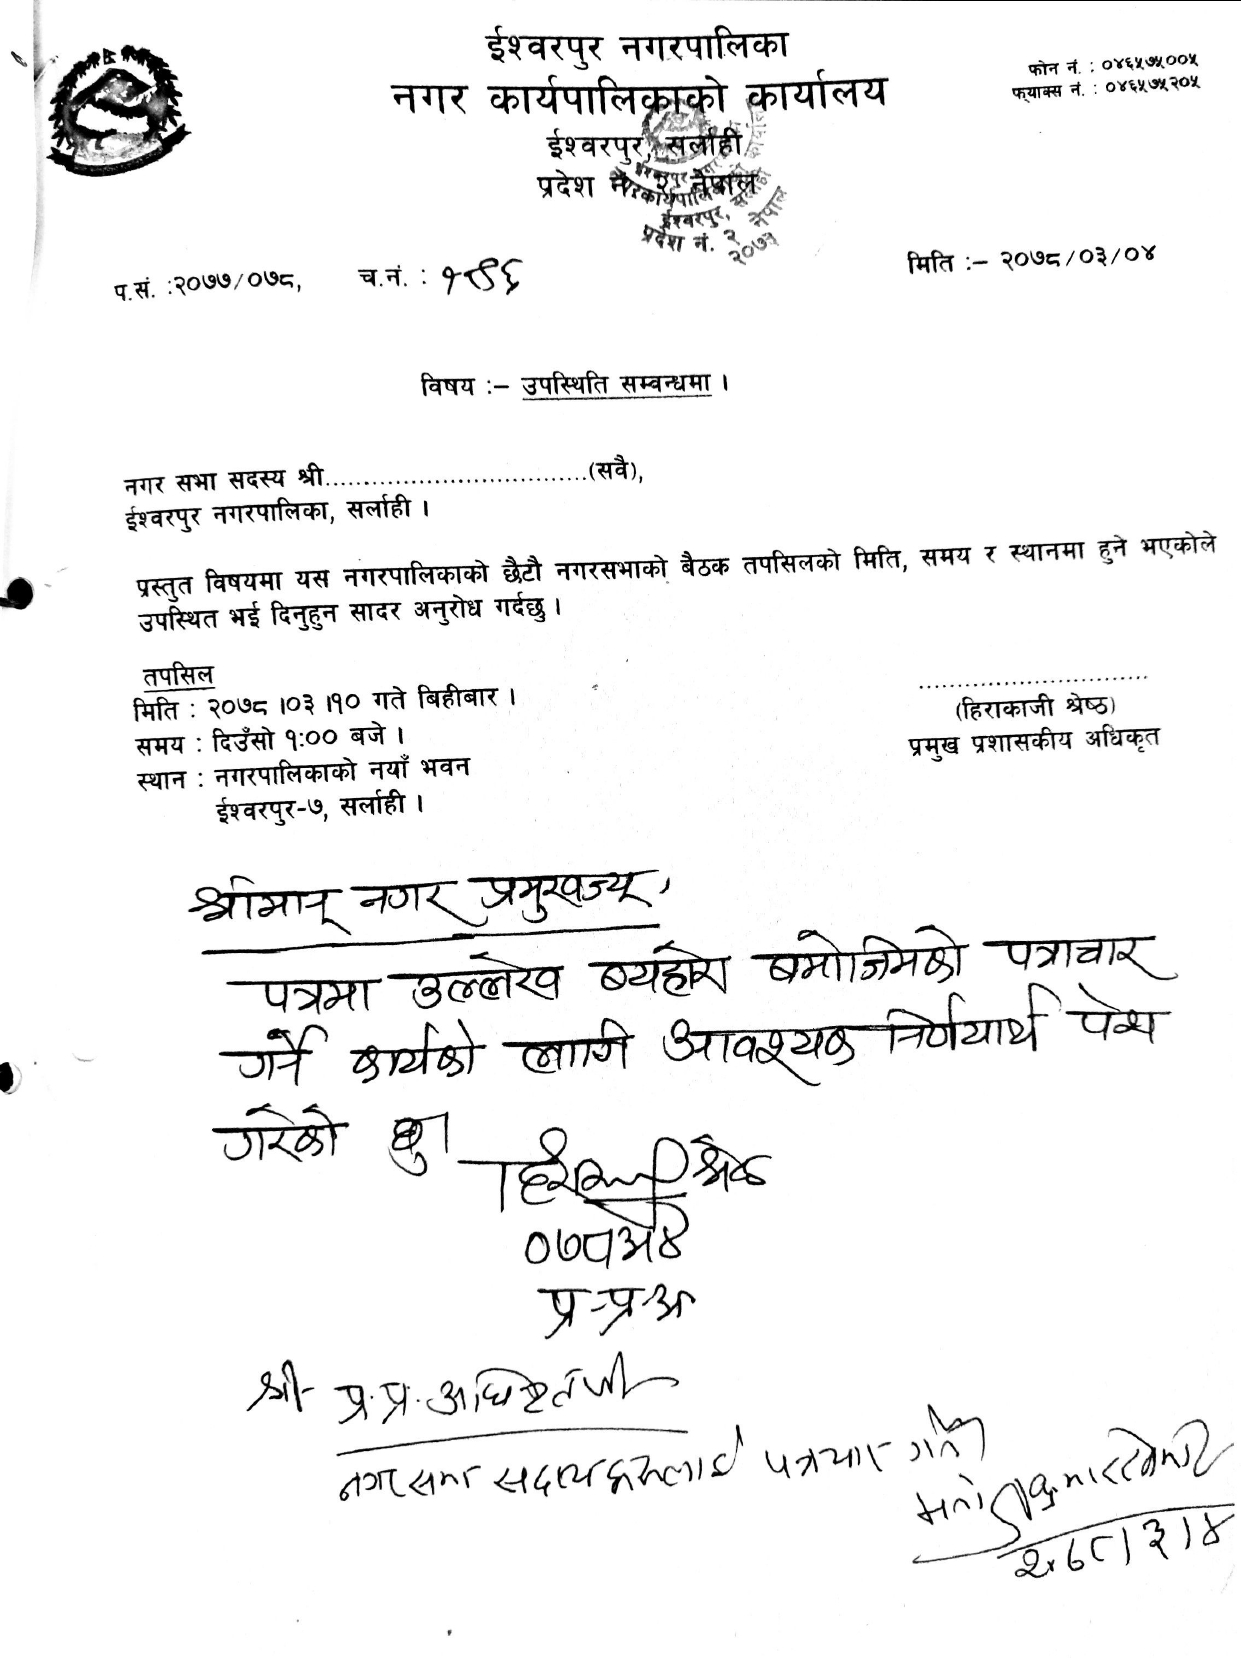 ईश्वरपुर नगरपालिका
नगर कार्यपालिकाको कार्यालय
ईश्वरपुर, सर्लाही
प्रदेश नं. २ नेपाल
फोन नं. : ०४६५७५००५
फ्याक्स नं. : ०४६५७५२०५
ईश्वरपुर नगर
कार्यपालिकाको कार्यालय
ईश्वरपुर, सर्लाही
प्रदेश नं. २ नेपाल
२०७३
प.सं. :२०७७/०७८, च.नं. : १९६
मिति :– २०७८/०३/०४
विषय :– उपस्थिति सम्वन्धमा ।
नगर सभा सदस्य श्री..................................(सवै),
ईश्वरपुर नगरपालिका, सर्लाही ।
प्रस्तुत विषयमा यस नगरपालिकाको छैटौ नगरसभाको बैठक तपसिलको मिति, समय र स्थानमा हुने भएकोले
उपस्थित भई दिनुहुन सादर अनुरोध गर्दछु ।
तपसिल
मिति : २०७८।०३।१० गते बिहीबार ।
समय : दिउँसो १:०० बजे ।
स्थान : नगरपालिकाको नयाँ भवन
ईश्वरपुर-७, सर्लाही ।
..............................
(हिराकाजी श्रेष्ठ)
प्रमुख प्रशासकीय अधिकृत
श्रीमान् नगर प्रमुखज्यू,
पत्रमा उल्लेख ब्यहोरा बमोजिमको पत्राचार
गर्ने कार्यको लागि आवश्यक निर्णयार्थ पेश
गरेको छु।
हिराकाजी श्रेष्ठ
प्र.प्र.अ
श्री प्र.प्र.अधिकृतजी
नगर सभा सदस्यहरुलाई पत्रचार गर्ने
२०७८।३।४